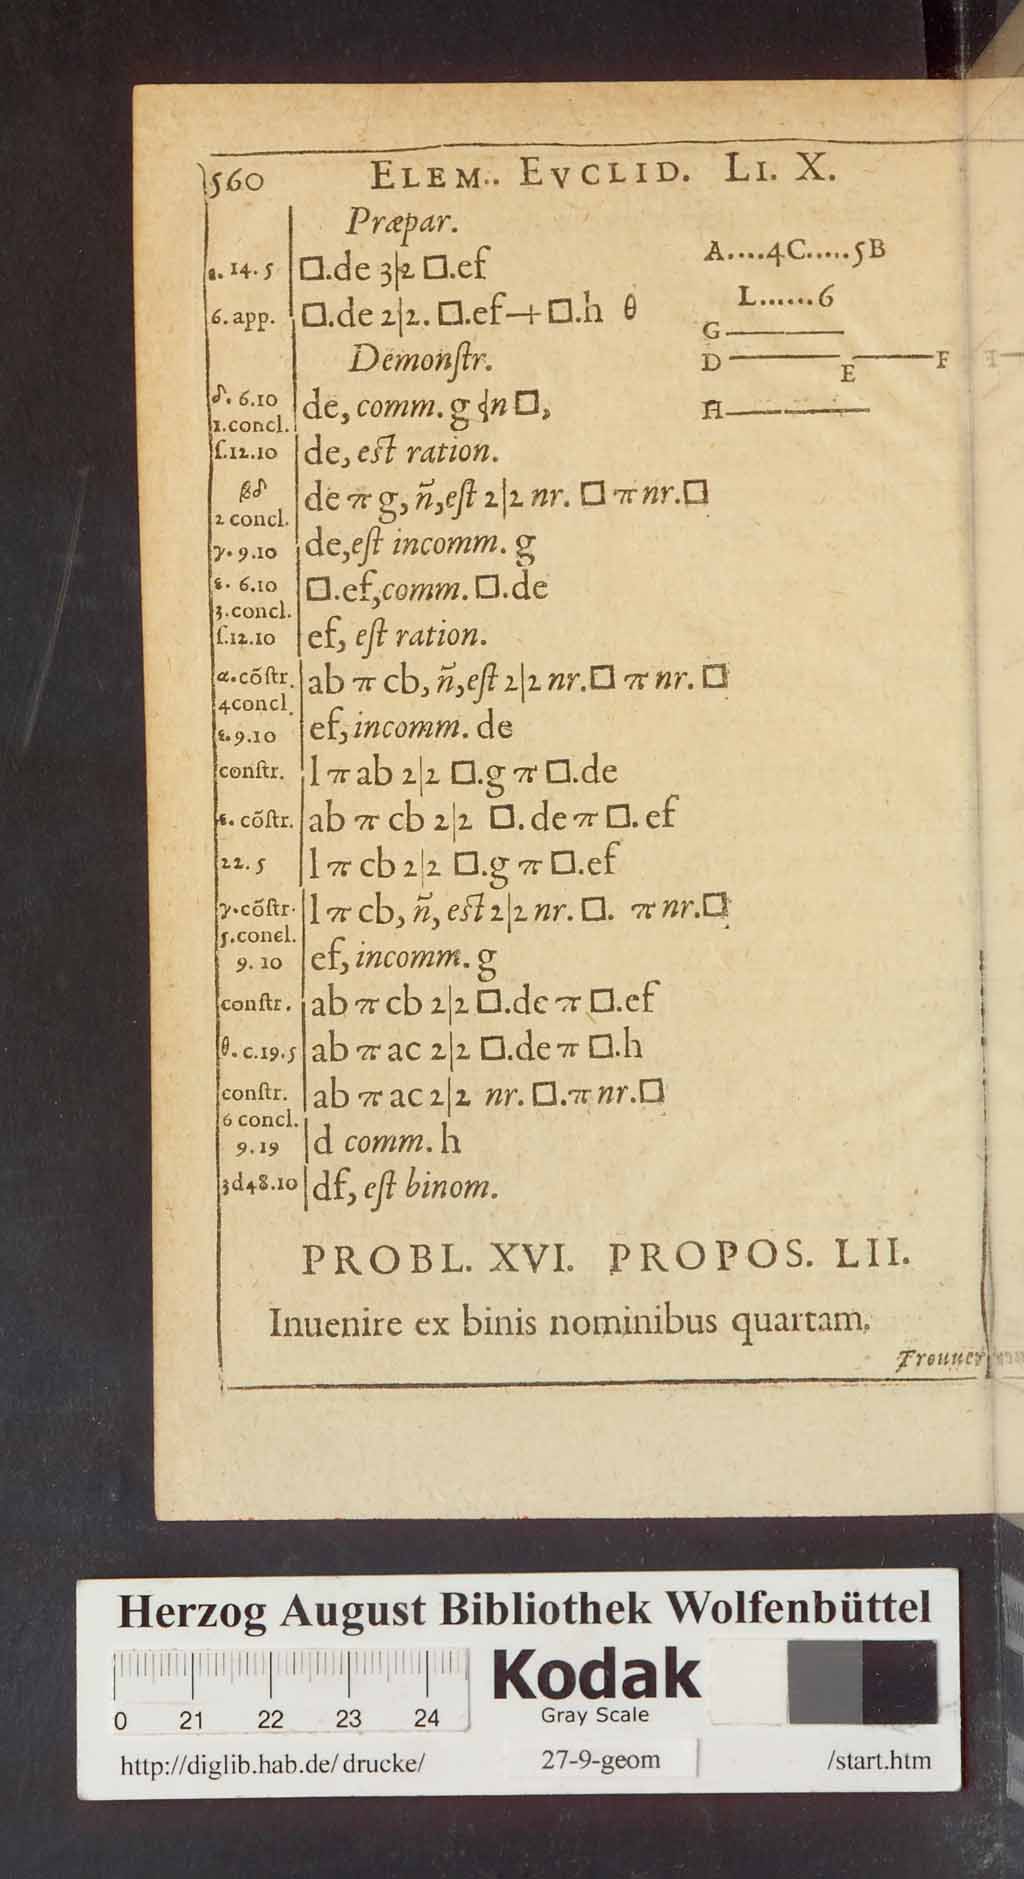 560 ELEM. EVCLID. LI. X.
Præpar.
ε. 14. 5 □.de 3|2 □.ef
A....4C.....5B
L......6
6. app. □.de 2|2. □.ef + □.h θ
G
Demonſtr.
D E F
δ. 6.10 de, comm. g ſn □,
H
1.concl.
ſ.12.10 de, eſt ration.
βδ de π g, ñ, eſt 2|2 nr. □ π nr.□
2 concl.
γ. 9.10 de, eſt incomm. g
ε. 6.10 □.ef, comm. □.de
3.concl.
ſ.12.10 ef, eſt ration.
α.cõſtr. ab π cb, ñ, eſt 2|2 nr.□ π nr. □
4concl.
ε.9.10 ef, incomm. de
conſtr. l π ab 2|2 □.g π □.de
ε. cõſtr. ab π cb 2|2 □. de π □. ef
22. 5 l π cb 2|2 □.g π □.ef
γ.cõſtr. l π cb, ñ, eſt 2|2 nr. □. π nr.□
5.concl.
9. 10 ef, incomm. g
conſtr. ab π cb 2|2 □.de π □.ef
θ. c.19.5 ab π ac 2|2 □.de π □.h
conſtr. ab π ac 2|2 nr. □.π nr.□
6 concl.
9. 19 d comm. h
3d48.10 df, eſt binom.
PROBL. XVI. PROPOS. LII.
Inuenire ex binis nominibus quartam.
Trouuer
Herzog August Bibliothek Wolfenbüttel
Kodak
Gray Scale
0 21 22 23 24
http://diglib.hab.de/drucke/ 27-9-geom /start.htm